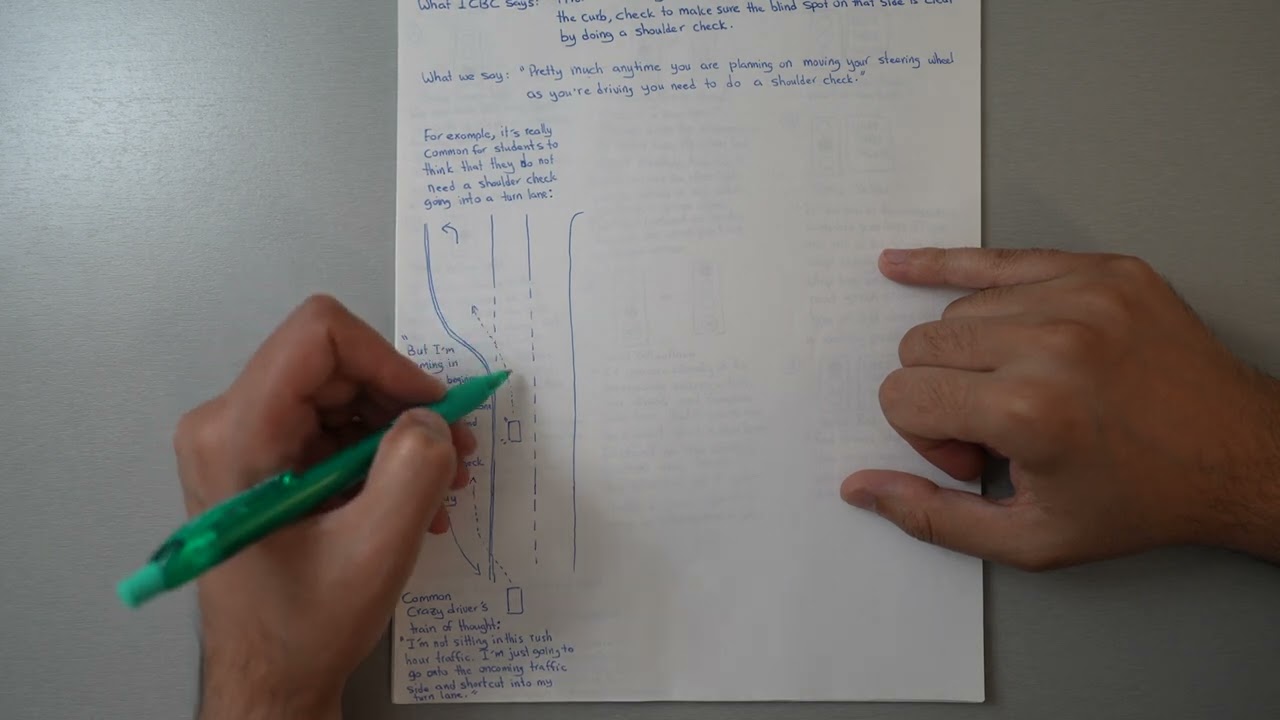 What ICBC says:
the curb, check to make sure the blind spot on that side is clear
by doing a shoulder check.
What we say: "Pretty much anytime you are planning on moving your steering wheel
as you're driving you need to do a shoulder check."
For example, it's really
common for students to
think that they do not
need a shoulder check
going into a turn lane:
"
But I'm
in
Common
Crazy driver's
train of thought:
"I'm not sitting in this rush
hour traffic. I'm just going to
go onto the oncoming traffic
side and shortcut into my
turn lane."